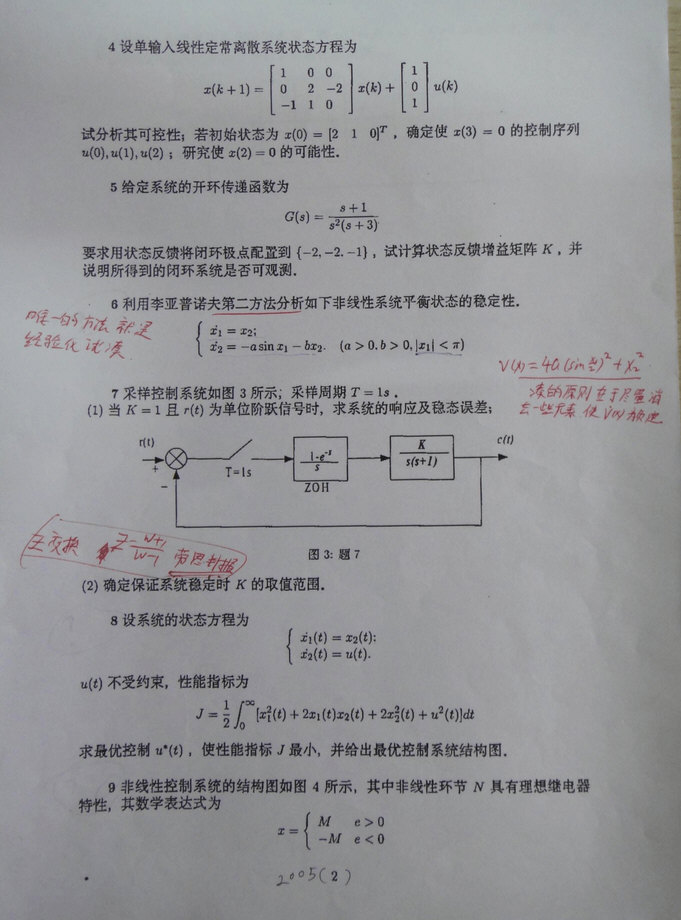 4 设单输入线性定常离散系统状态方程为
x(k+1) = [1 0 0; 0 2 -2; -1 1 0] x(k) + [1; 0; 1] u(k)
试分析其可控性；若初始状态为 x(0) = [2 1 0]^T，确定使 x(3) = 0 的控制序列
u(0), u(1), u(2)；研究使 x(2) = 0 的可能性.
5 给定系统的开环传递函数为
G(s) = (s+1)/(s²(s+3))
要求用状态反馈将闭环极点配置到 {-2, -2, -1}，试计算状态反馈增益矩阵 K，并
说明所得到的闭环系统是否可观测.
6 利用李亚普诺夫第二方法分析如下非线性系统平衡状态的稳定性.
唯一的方法就是
经验化试凑.
{ ẋ₁ = x₂;
ẋ₂ = -a sin x₁ - bx₂. (a > 0, b > 0, |x₁| < π)
V(x) = 4a(sin x₁/2)² + x₂²
凑的原则在于尽量消
去一些元素 使 V̇(x)
7 采样控制系统如图 3 所示；采样周期 T = 1s.
(1) 当 K = 1 且 r(t) 为单位阶跃信号时，求系统的响应及稳态误差；
r(t)
+
-
T=1s
1-e^-s
s
ZOH
K
s(s+1)
c(t)
图 3: 题 7
Z变换 Z = (w+1)/(w-1) 劳思判据
(2) 确定保证系统稳定时 K 的取值范围.
8 设系统的状态方程为
{ ẋ₁(t) = x₂(t);
ẋ₂(t) = u(t).
u(t) 不受约束，性能指标为
J = 1/2 ∫₀^∞ [x₁²(t) + 2x₁(t)x₂(t) + 2x₂²(t) + u²(t)]dt
求最优控制 u*(t)，使性能指标 J 最小，并给出最优控制系统结构图.
9 非线性控制系统的结构图如图 4 所示，其中非线性环节 N 具有理想继电器
特性，其数学表达式为
x = { M e > 0
-M e < 0
2005(2)